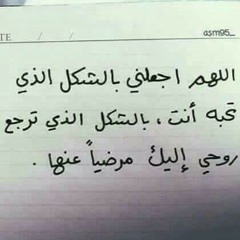 TE / /
asm95_
اللهم اجعلني بالشكل الذي
تحبه أنت ، بالشكل الذي ترجع
روحي إليك مرضياً عنها .